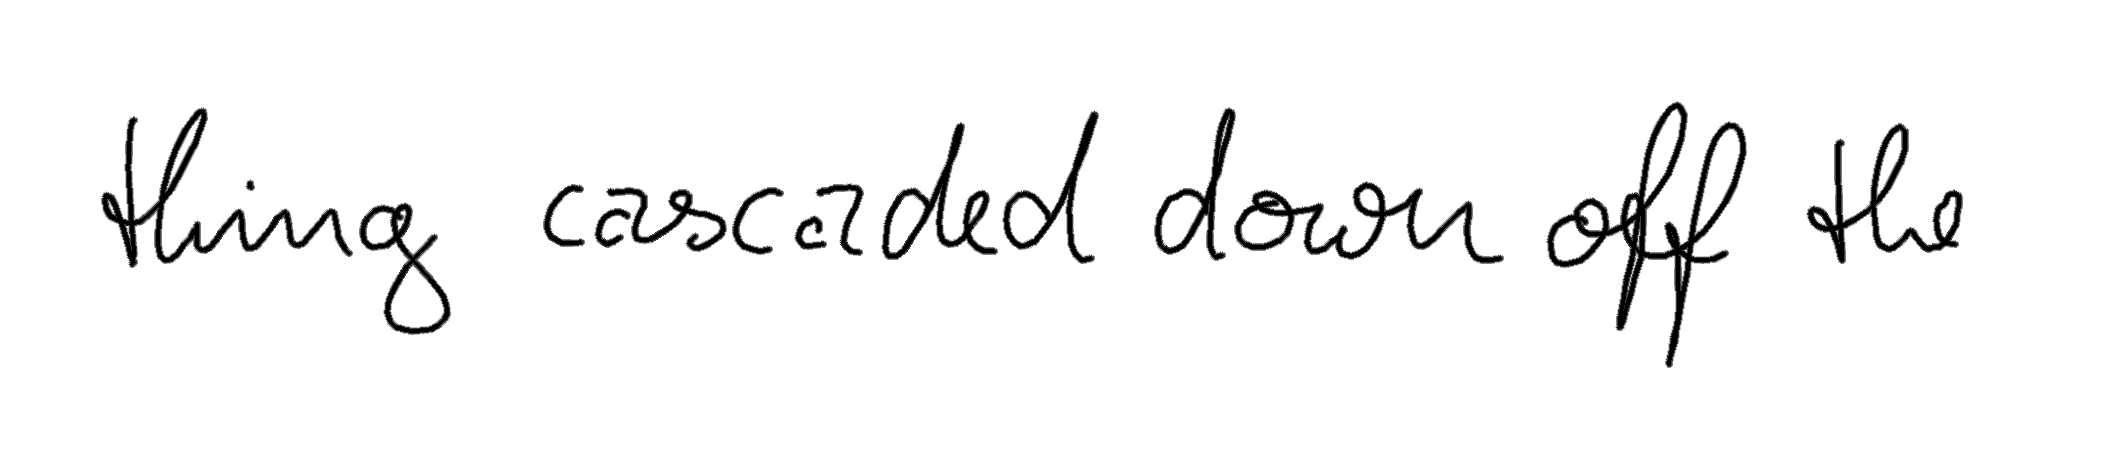 thing cascaded down off the